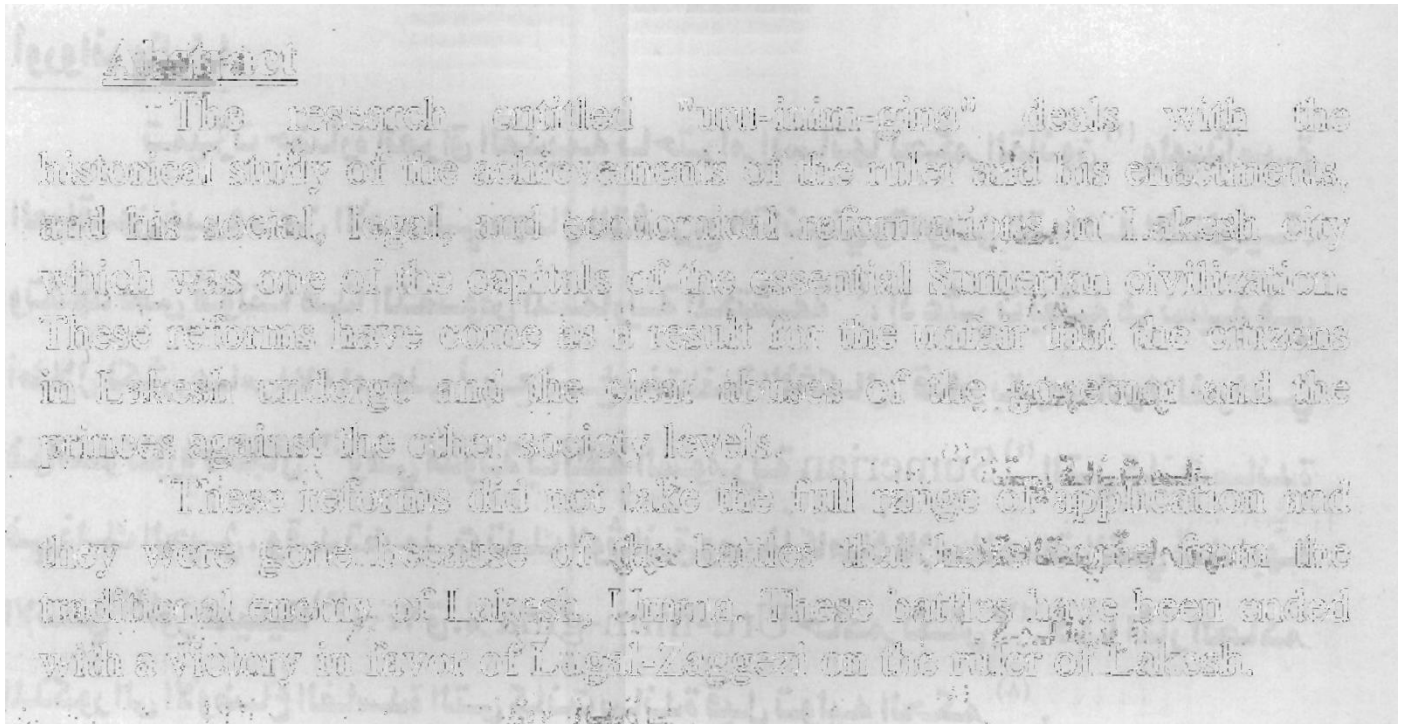 Abstract
The research entitled "uru-inim-gina" deals with the
historical study of the achievements of the ruler and his enactments,
and his social, legal, and economical reformations in Lakesh city
which was one of the capitals of the essential Sumerian civilization.
These reforms have come as a result for the unfair that the citizens
in Lakesh undergo and the clear abuses of the governor and the
princes against the other society levels.
These reforms did not take the full range of application and
they were gone because of the battles that have from the
traditional enemy of Lakesh, Umma. These battles have been ended
with a victory in favor of Lugal-Zaggezi on the ruler of Lakesh.